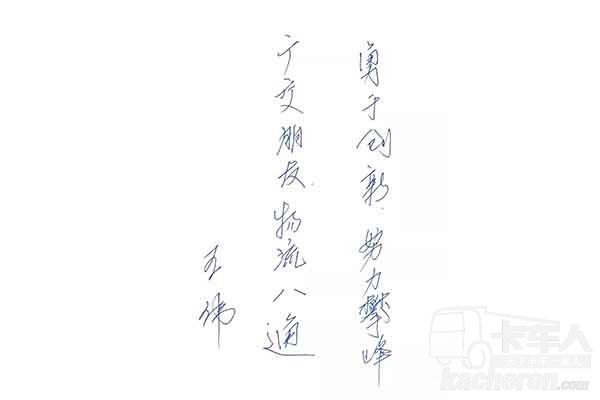 勇于创新.努力攀峰
广交朋友.物流八通
王伟
卡车人
天下卡车一家人
kacheren.com